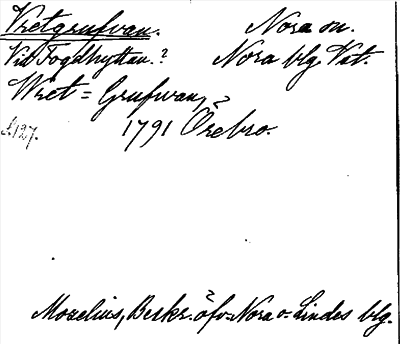 Vretgrufvan. Nora sn.
Vid Fogdhyttan? Nora blg. Vst.
Wret = Grufwan,
s. 127. 1791 Örebro.
Moselius, Beskr. öfv. Nora o. Lindes blg.